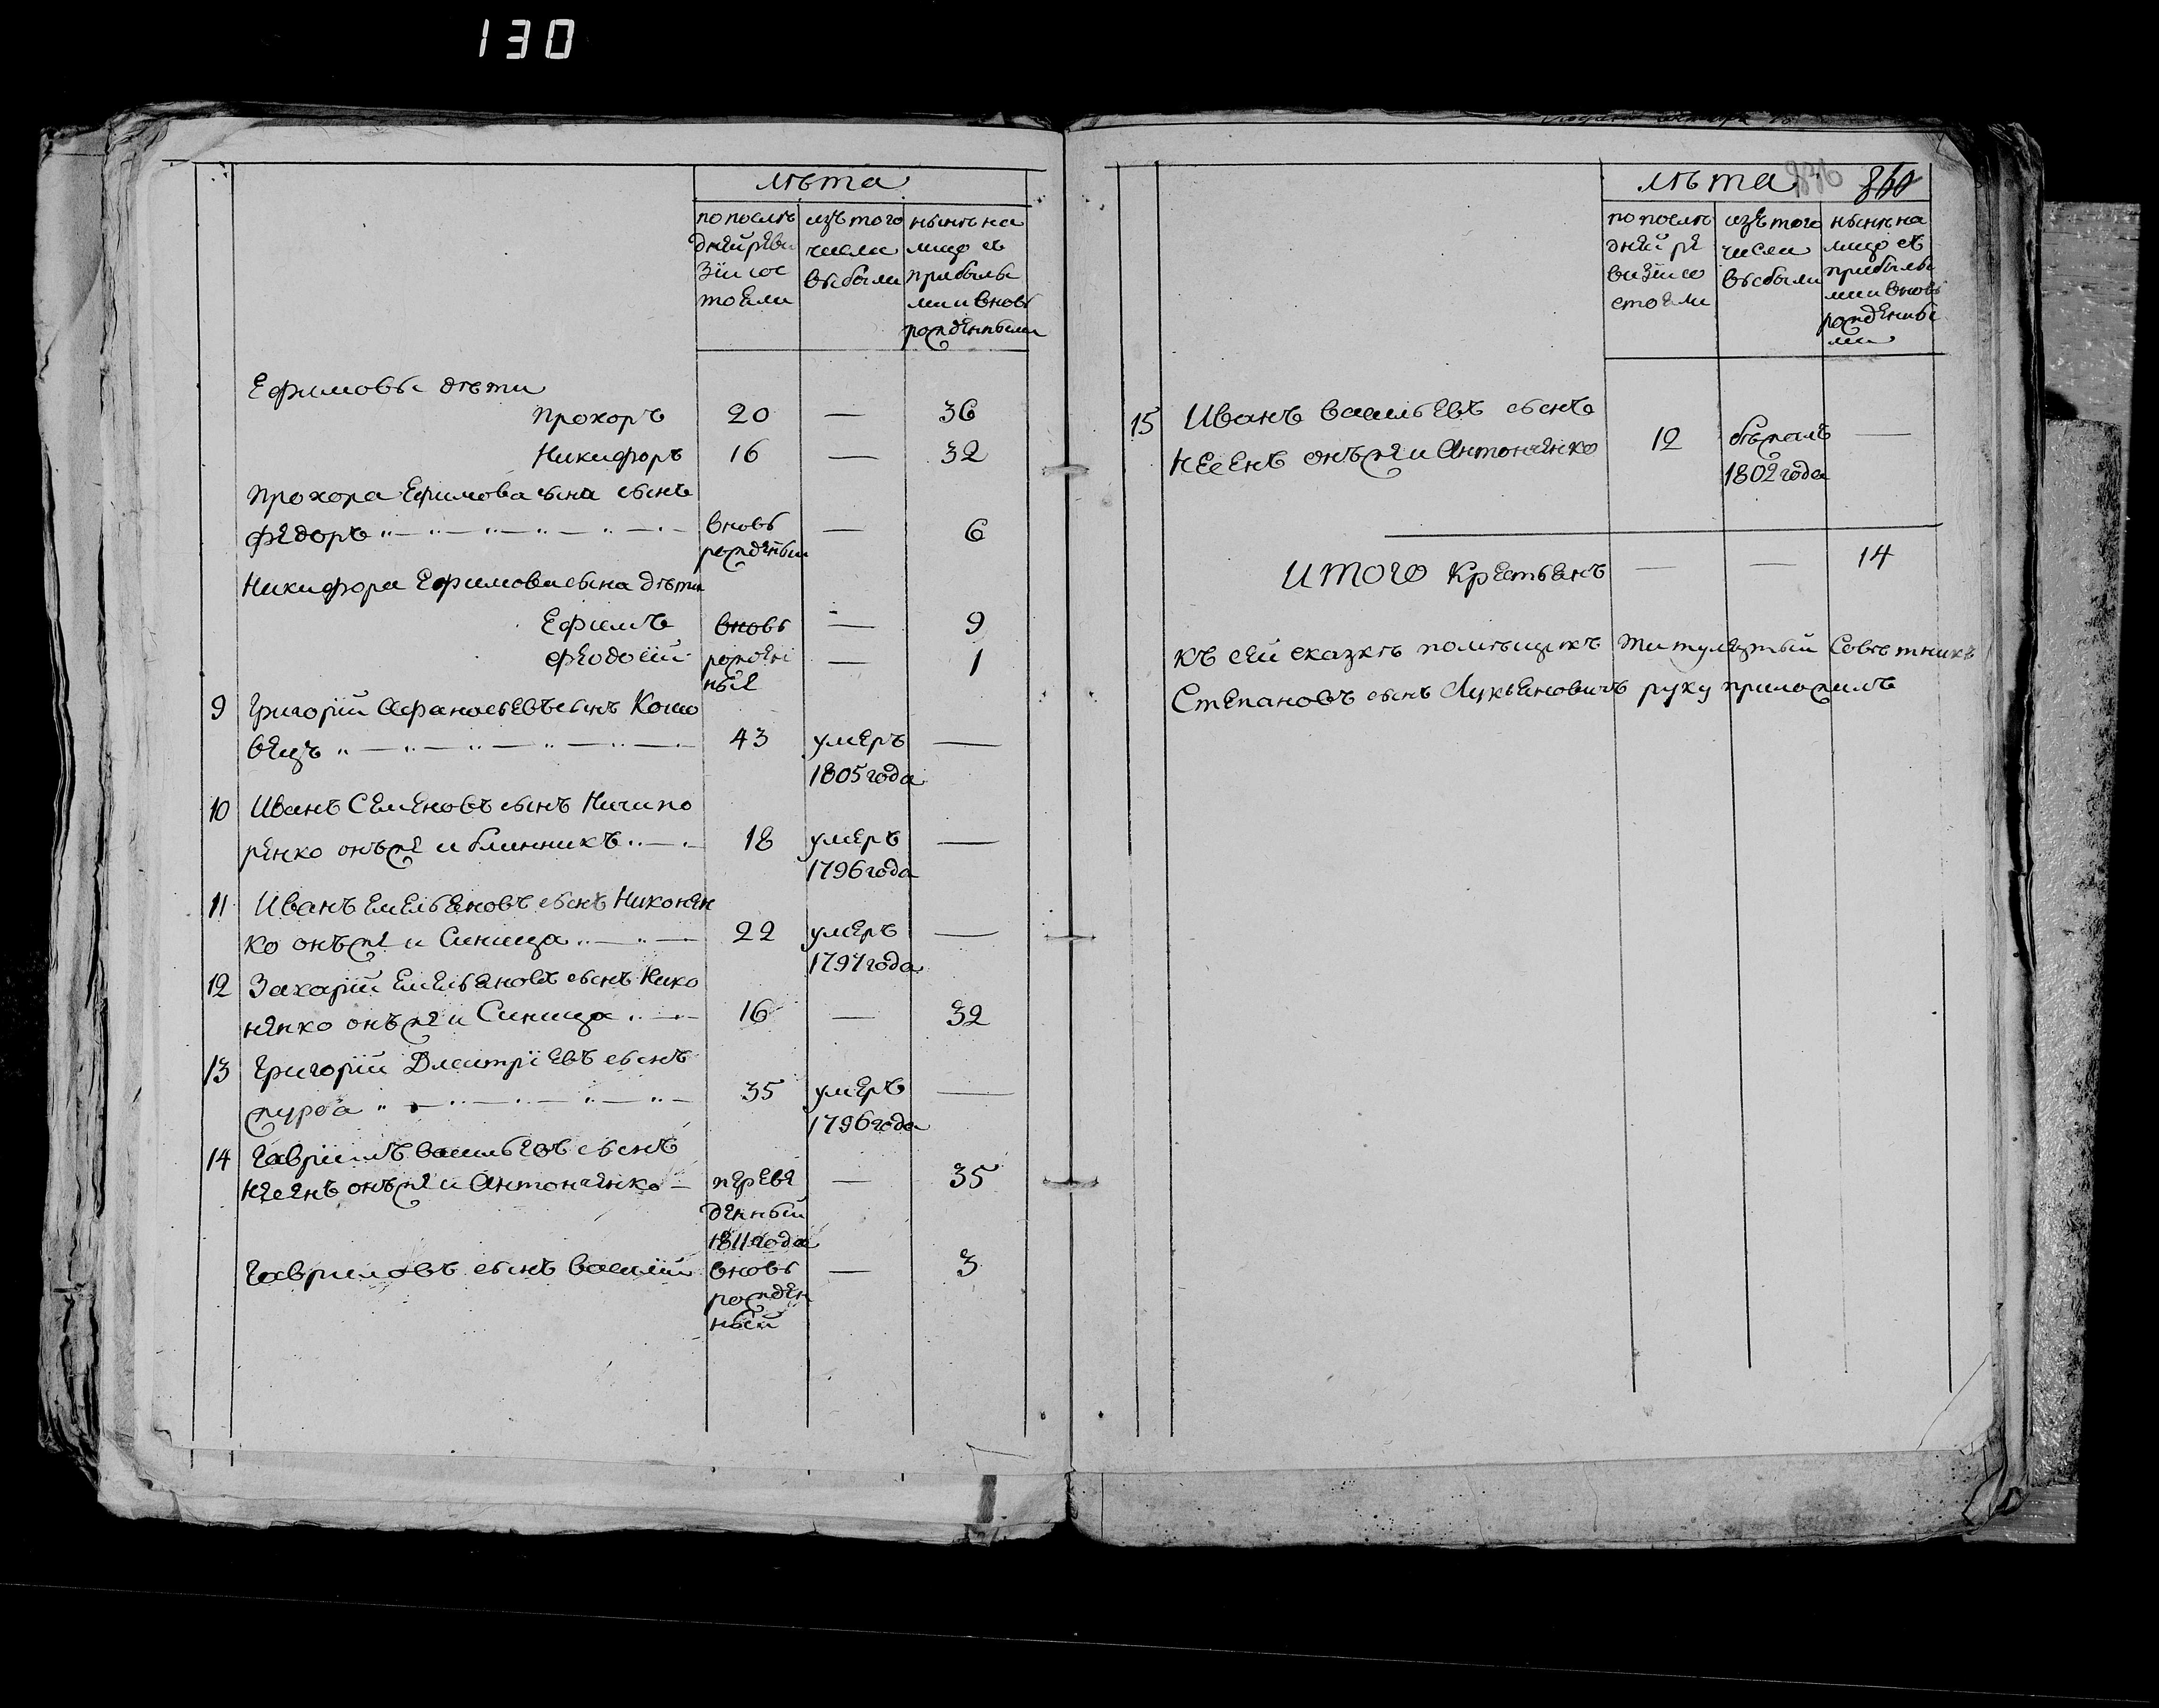 130
лѣта
по послѣ
дней реви
зіи сос
тояли
изъ того
числа
выбыли
нынѣ на
лицо съ
прибылы
ми и вновь
рожденными
Ефимовы дѣти
Прохоръ 20 — 36
Никифоръ 16 — 32
Прохора Ефимова сына сынъ
Федоръ вновь — 6
рожденный
Никифора Ефимова сына дѣти
Ефимъ вновь — 9
Феодосій рожден — 1
ныя
9 Григорій Афанасьевъ сынъ
вецъ 43 умеръ —
1805 года
10 Иванъ Семеновъ сынъ Ничипо
ренко онъ же и блинникъ 18 умеръ —
1796 года
11 Иванъ Емельяновъ сынъ Никонен
ко онъ же и Синица 22 умеръ —
1797 года
12 Захарій Емельяновъ сынъ Нико
ненко онъ же и Синица 16 — 32
13 Григорій Дмитріевъ сынъ
журба 35 умеръ —
1796 года
14 Гавріилъ Васильевъ сынъ
Несенъ онъ же и Антоненко — переве — 35
денный
1811 года
Гавриловъ сынъ Василій вновь — 3
рожден
ный
лѣта 836 860
по послѣ
дней ре
визіи со
стояли
изъ того
числа
выбыли
нынѣ на
лицо съ
прибылы
ми и вновь
рожденны
ми
15 Иванъ Васильевъ сынъ
Несенъ онъ же и Антоненко 12 бѣжалъ —
1802 года
Итого крестьянъ — — 14
Къ сей сказкѣ помѣщикъ титулярный Совѣтникъ
Степановъ сынъ Лукьяновичъ руку приложилъ